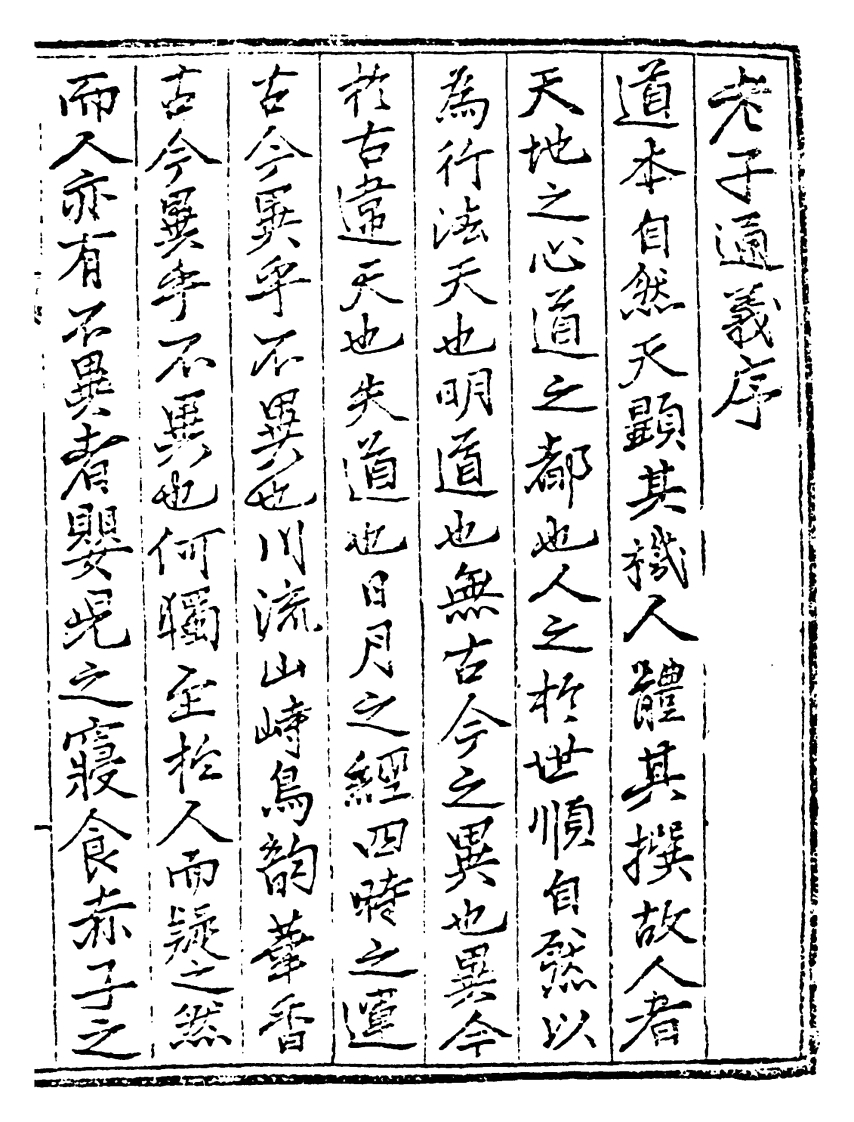 老子通義序
道本自然天顯其機人體其撰故人者
天地之心道之都也人之於世順自然以
為行法天也明道也無古今之異也異今
於古違天也失道也日月之經四時之運
古今異乎不異也川流山峙鳥韵華香
古今異乎不異也何獨至於人而疑之然
而人亦有不異者嬰児之寢食赤子之